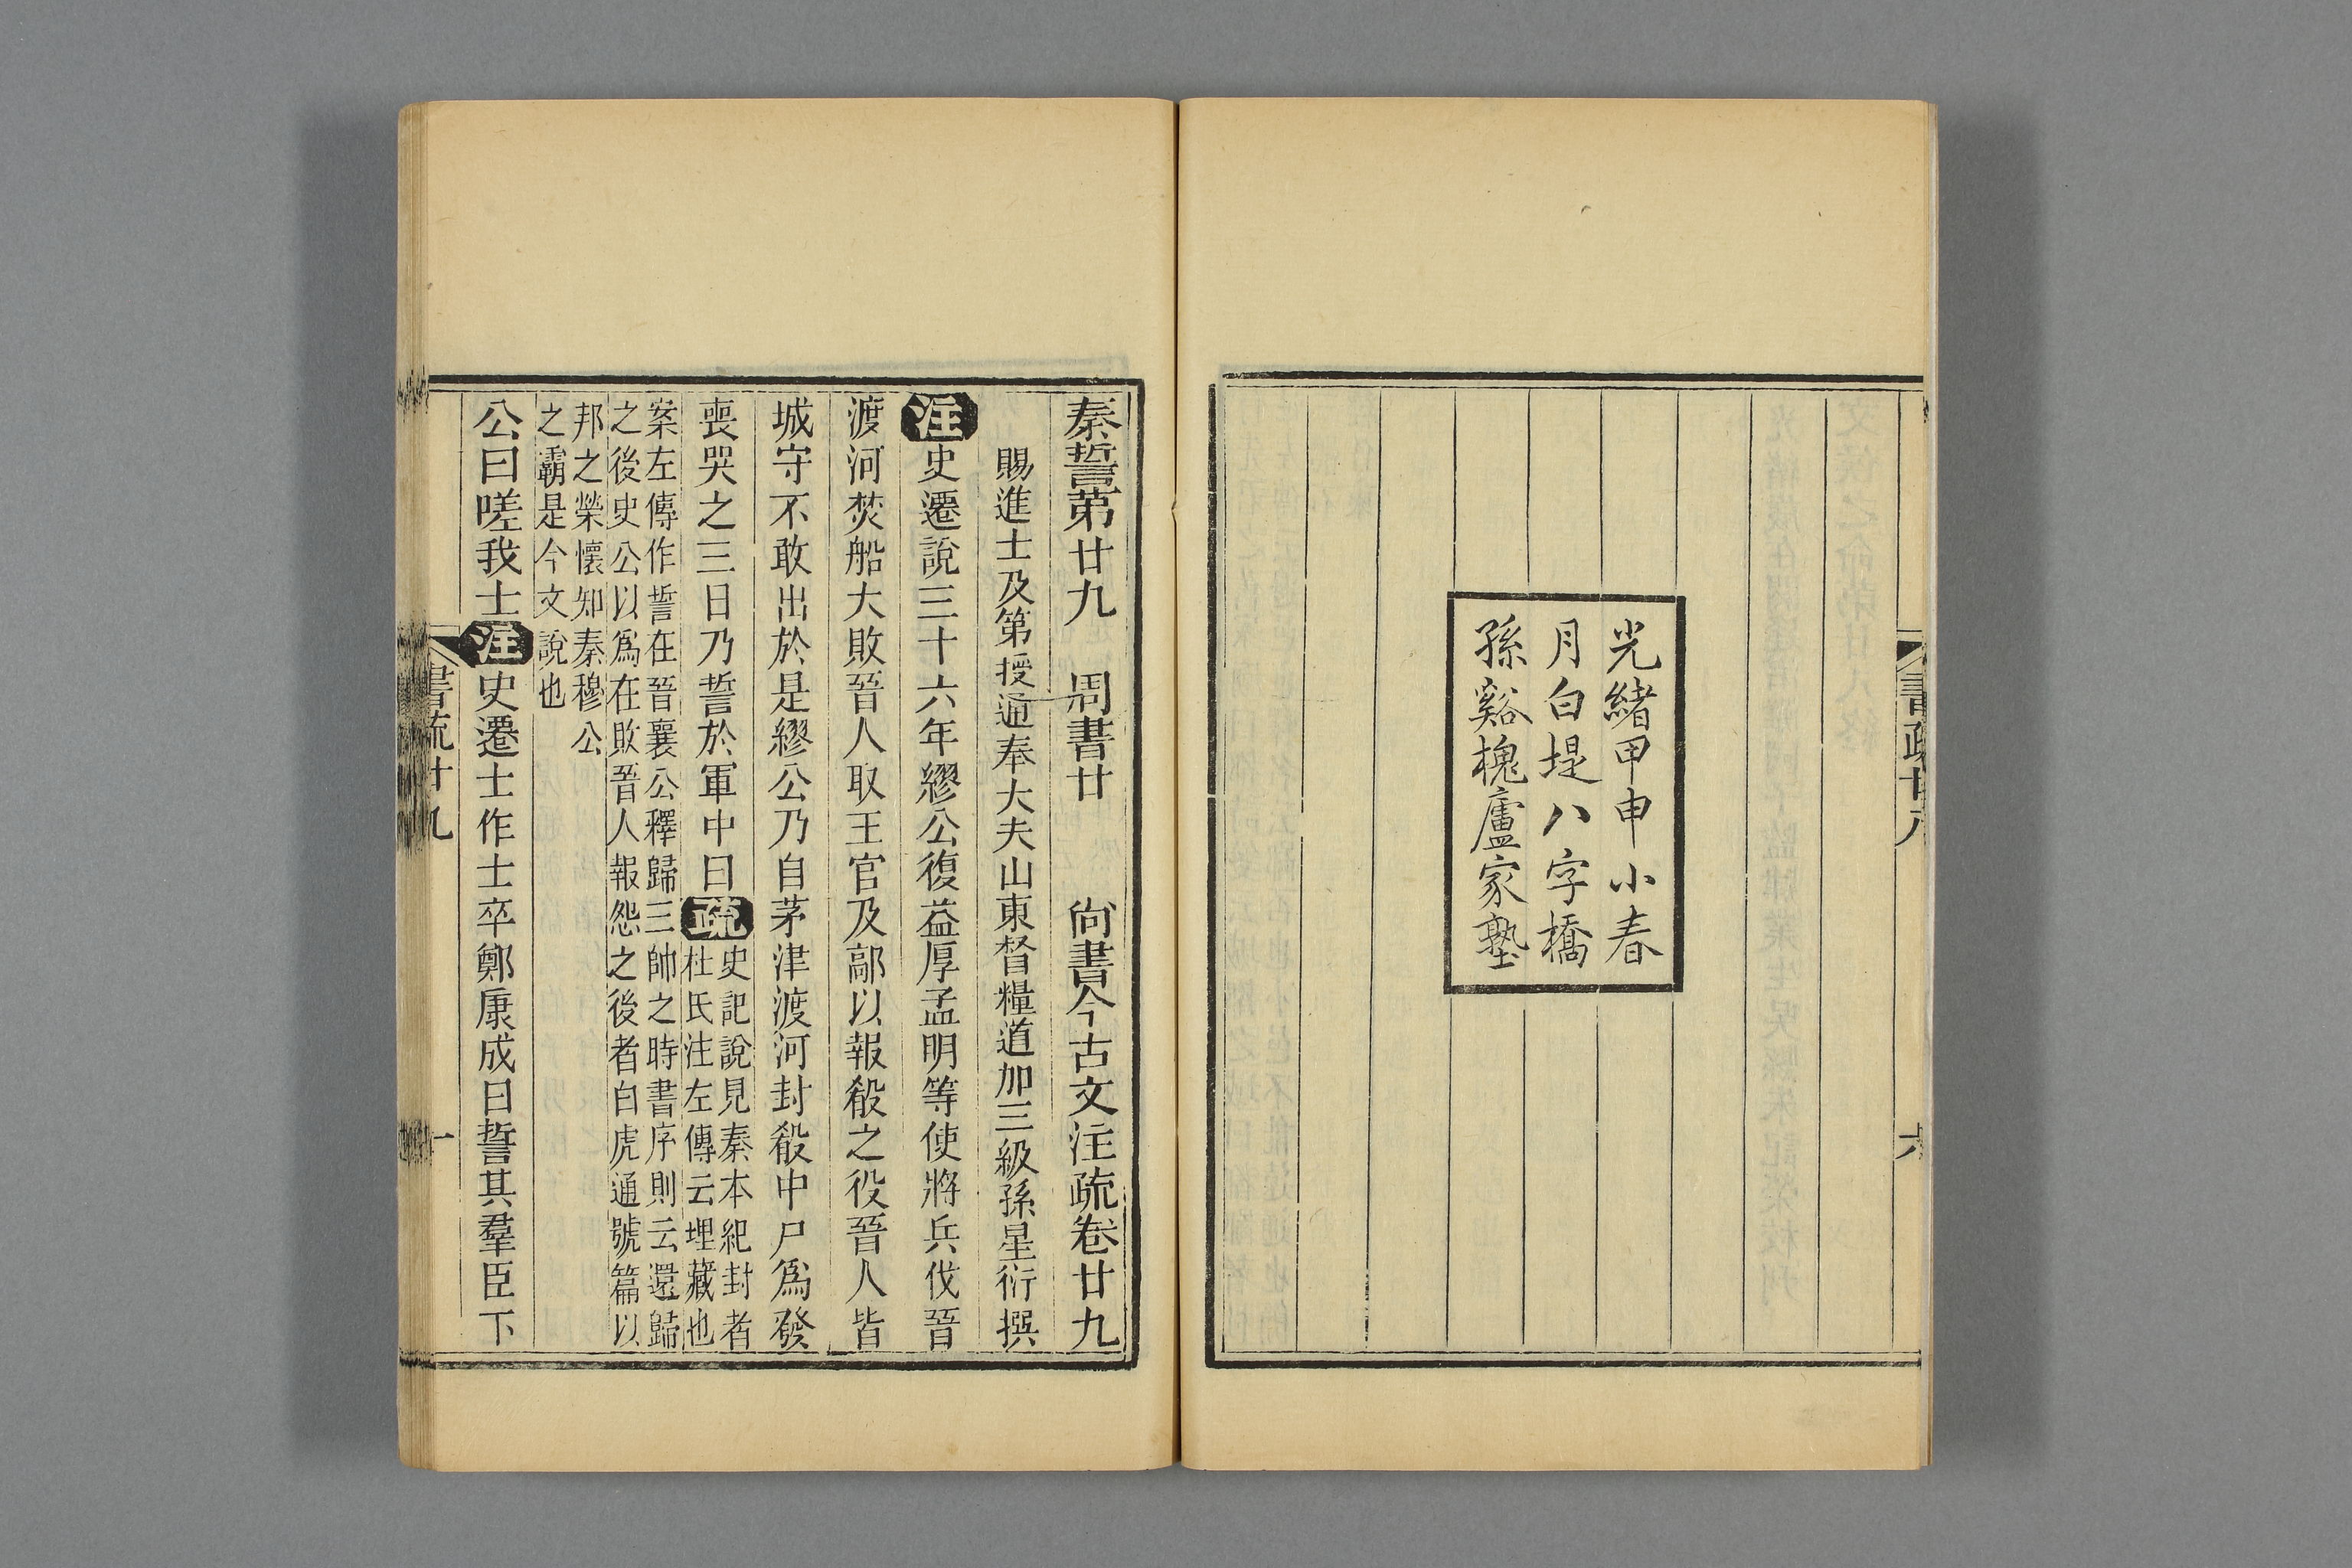 書疏廿八
六
光緒甲申小春
月白堤八字橋
孫谿槐廬家塾
秦誓第廿九 周書廿 尙書今古文注疏卷廿九
賜進士及第授通奉大夫山東督糧道加三級孫星衍撰
注史遷說三十六年繆公復益厚孟明等使將兵伐晉
渡河焚船大敗晉人取王官及鄗以報殽之役晉人皆
城守不敢出於是繆公乃自茅津渡河封殽中尸爲發
喪哭之三日乃誓於軍中曰疏
史記說見秦本紀封者
杜氏注左傳云埋藏也
案左傳作誓在晉襄公釋歸三帥之時書序則云還歸
之後史公以爲在敗晉人報怨之後者白虎通號篇以
邦之榮懷知秦穆公
之霸是今文說也
公曰嗟我士注史遷士作士卒鄭康成曰誓其羣臣下
書疏廿九
一